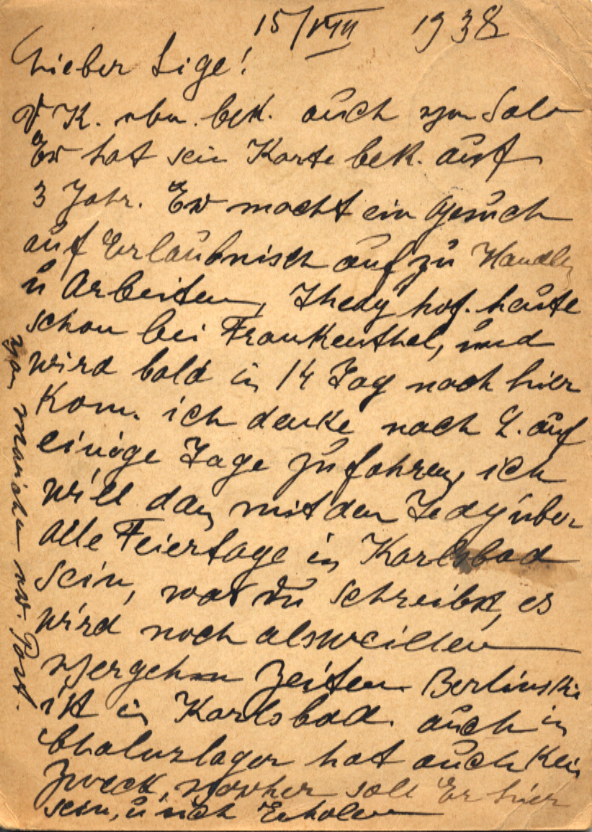 15/VIII 1938
Lieber Sige!
D. K. bek. auch von Salo
Er hat sein Karte bek. auf
3 Jahr. Er macht ein Gesuch
auf Erlaubnisch auf zu Handln
u Arbeiten, Thedy hof. heute
schon bei Frankenthal, und
wird bald in 14 Tag nach hier
Kom. ich denke nach L. auf
einige Tage zu fahren, ich
will dan mit den Tedy über
Alle Feiertage in Karlsbad
sein, was du schreibst, es
wird noch alsweillen
vergehen Zeiten Berlinski
ist in Karlsbad. auch in
hat auch Kein
Zweck, vorher soll Er hier
sein, u sich Erholen
von nw. Post.